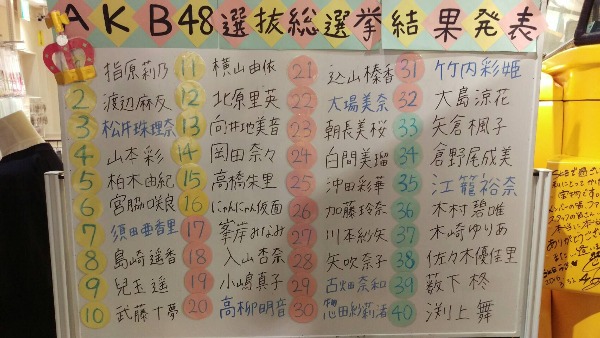 AKB48選抜総選挙結果発表
指原莉乃
2 渡辺麻友
3 松井珠理奈
4 山本彩
5 柏木由紀
6 宮脇咲良
7 須田亜香里
8 島崎遥香
9 兒玉遥
10 武藤十夢
11 横山由依
12 北原里英
13 向井地美音
14 岡田奈々
15 高橋朱里
16 にゃんにゃん仮面
17 峯岸みなみ
18 入山杏奈
19 小嶋真子
20 高柳明音
21 込山榛香
22 大場美奈
23 朝長美桜
24 白間美瑠
25 沖田彩華
26 加藤玲奈
27 川本紗矢
28 矢吹奈子
29 古畑奈和
30 惣田紗莉渚
31 竹内彩姫
32 大島涼花
33 矢倉楓子
34 倉野尾成美
35 江籠裕奈
36 木村碧唯
37 木崎ゆりあ
38 佐々木優佳里
39 薮下柊
40 渕上舞